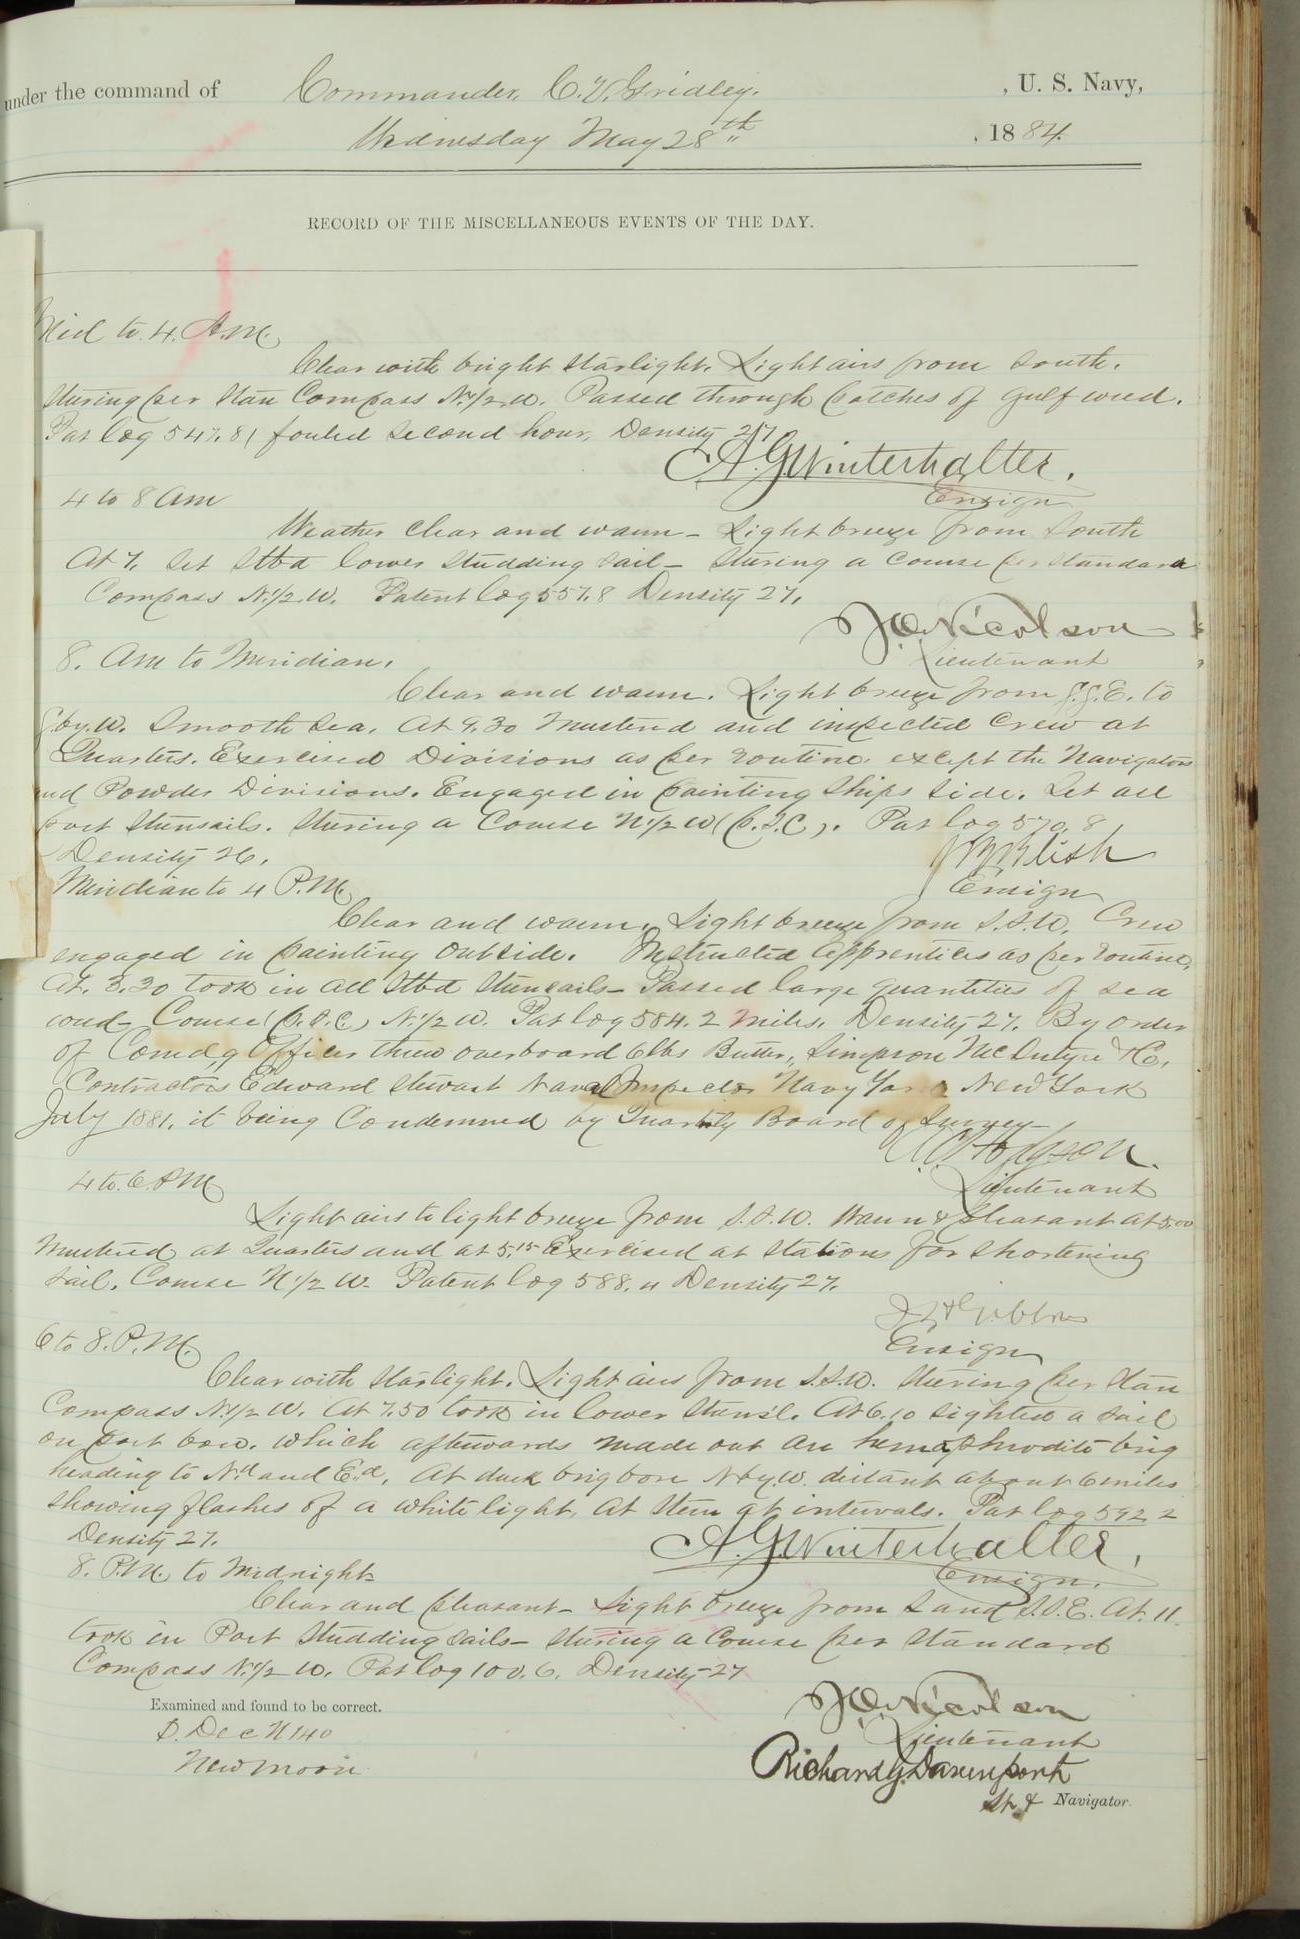 under the command of Commander, C. V. Gridley. , U. S. Navy,
Wednesday May 28th , 1884.
RECORD OF THE MISCELLANEOUS EVENTS OF THE DAY.
Mid to 4. A.M.
Clear with bright starlight. Light airs from South.
Steering per Stan Compass N.1/2.W. Passed through patches of gulf weed.
Pat log 547.81 fouled second hour, Density 27
A. G. Winterhalter.
Ensign
4 to 8 Am
Weather clear and warm - Light breeze from South
At 7. Set Stbd lower studding sail - Steering a course per standard
Compass N.1/2.W. Patent log 557.8 Density 27.
J O Nicolson
Lieutenant
8. Am to Meridian.
Clear and warm. Light breeze from S.S.E. to
S. by. W. Smooth Sea. At 9.30 Mustered and inspected Crew at
Quarters. Exercised Divisions as per routine except the Navigators
and Powder Divisions. Engaged in painting Ships side. Set all
port stunsails. Steering a Course N.1/2 W (p.S.C). Pat log 570.8
Density 26.
J B Blish
Ensign
Meridian to 4 P.M.
Clear and warm. Light breeze from S.S.W. Crew
engaged in painting outside. Instructed apprentices as per routine.
At. 3.30 took in all Stbd Stunsails - Passed large quantities of sea
weed - Course (p.S.C) N.1/2 W. Pat log 584.2 miles. Density 27. By order
of Comdg Officer threw overboard 6lbs Butter, Simpson McIntyre & Co,
Contractors Edward Stewart Naval Inspector Navy Yard New York
July 1881, it being Condemned by Quartily Board of Survey -
A C Hodgson.
Lieutenant
4 to. 6. P M
Light airs to light breeze from S.S.W. Warm & pleasant at 5.00
Mustered at Quarters and at 5.15 Exercised at Stations for shortening
sail. Course N.1/2 W. Patent log 588.4 Density 27.
J H Gibbons
Ensign
6 to 8. P.M.
Clear with Starlight. Light airs from S.S.W. Steering per Stan
Compass N.1/2 W. At 7.50 took in lower Stuns'l. At 6.10 sighted a sail
on port bow. which afterwards made out an hemaphrodite brig
heading to Nd and Ed. At dusk brig bore N by. W. distant about 6 miles
showing flashes of a white light, at stern at intervals. Pat log 592.2
Density 27.
A. G. Winterhalter,
Ensign.
8. P.M. to Midnight
Clear and pleasant - Light breeze from S and S.S.E. At. 11
took in Port Studding sails - Steering a Course per Standard
Compass N.1/2 W. Pat log 100.6. Density 27
J O Nicolson
Lieutenant
Examined and found to be correct.
D. Dec N 140
New moon
Richard G. Davenport
Lt. & Navigator.